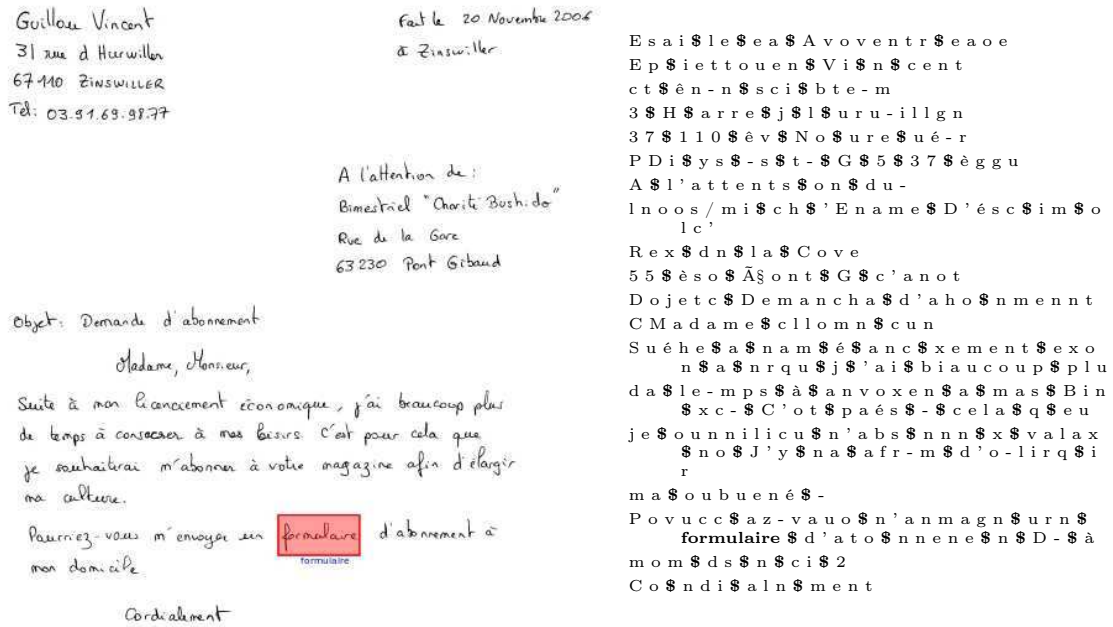 Guillou Vincent
31 rue d Hurwiller
67110 ZINSWILLER
Tél: 03.91.69.98.77
Fait le 20 Novembre 2006
à Zinswiller
A l'attention de :
Bimestriel "Charité Bushido"
Rue de la Gare
63230 Pont Gibaud
Objet: Demande d'abonnement
Madame, Monsieur,
Suite à mon licenciement économique, j'ai beaucoup plus
de temps à consacrer à mes loisirs. C'est pour cela que
je souhaiterai m'abonner à votre magazine afin d'élargir
ma culture.
Pourriez-vous m'envoyer un formulaire d'abonnement à
formulaire
mon domicile
Cordialement
E s a i $ l e $ e a $ A v o v e n t r $ e a o e
E p $ i e t t o u e n $ V i $ n $ c e n t
c t $ ê n - n $ s c i $ b t e - m
3 $ H $ a r r e $ j $ l $ u r u - i l l g n
3 7 $ 1 1 0 $ ê v $ N o $ u r e $ u é - r
P D i $ y s $ - s $ t - $ G $ 5 $ 3 7 $ è g g u
A $ l ' a t t e n t s $ o n $ d u -
l n o o s / m i $ c h $ ' E n a m e $ D ' é s c $ i m $ o
l c '
R e x $ d n $ l a $ C o v e
5 5 $ è s o $ Ã§ o n t $ G $ c ' a n o t
D o j e t c $ D e m a n c h a $ d ' a h o $ n m e n n t
C M a d a m e $ c l l o m n $ c u n
S u é h e $ a $ n a m $ é $ a n c $ x e m e n t $ e x o
n $ a $ n r q u $ j $ ' a i $ b i a u c o u p $ p l u
d a $ l e - m p s $ à $ a n v o x e n $ a $ m a s $ B i n
$ x c - $ C ' o t $ p a é s $ - $ c e l a $ q $ e u
j e $ o u n n i l i c u $ n ' a b s $ n n n $ x $ v a l a x
$ n o $ J ' y $ n a $ a f r - m $ d ' o - l i r q $ i
r
m a $ o u b u e n é $ -
P o v u c c $ a z - v a u o $ n ' a n m a g n $ u r n $
formulaire $ d ' a t o $ n n e n e $ n $ D - $ à
m o m $ d s $ n $ c i $ 2
C o $ n d i $ a l n $ m e n t